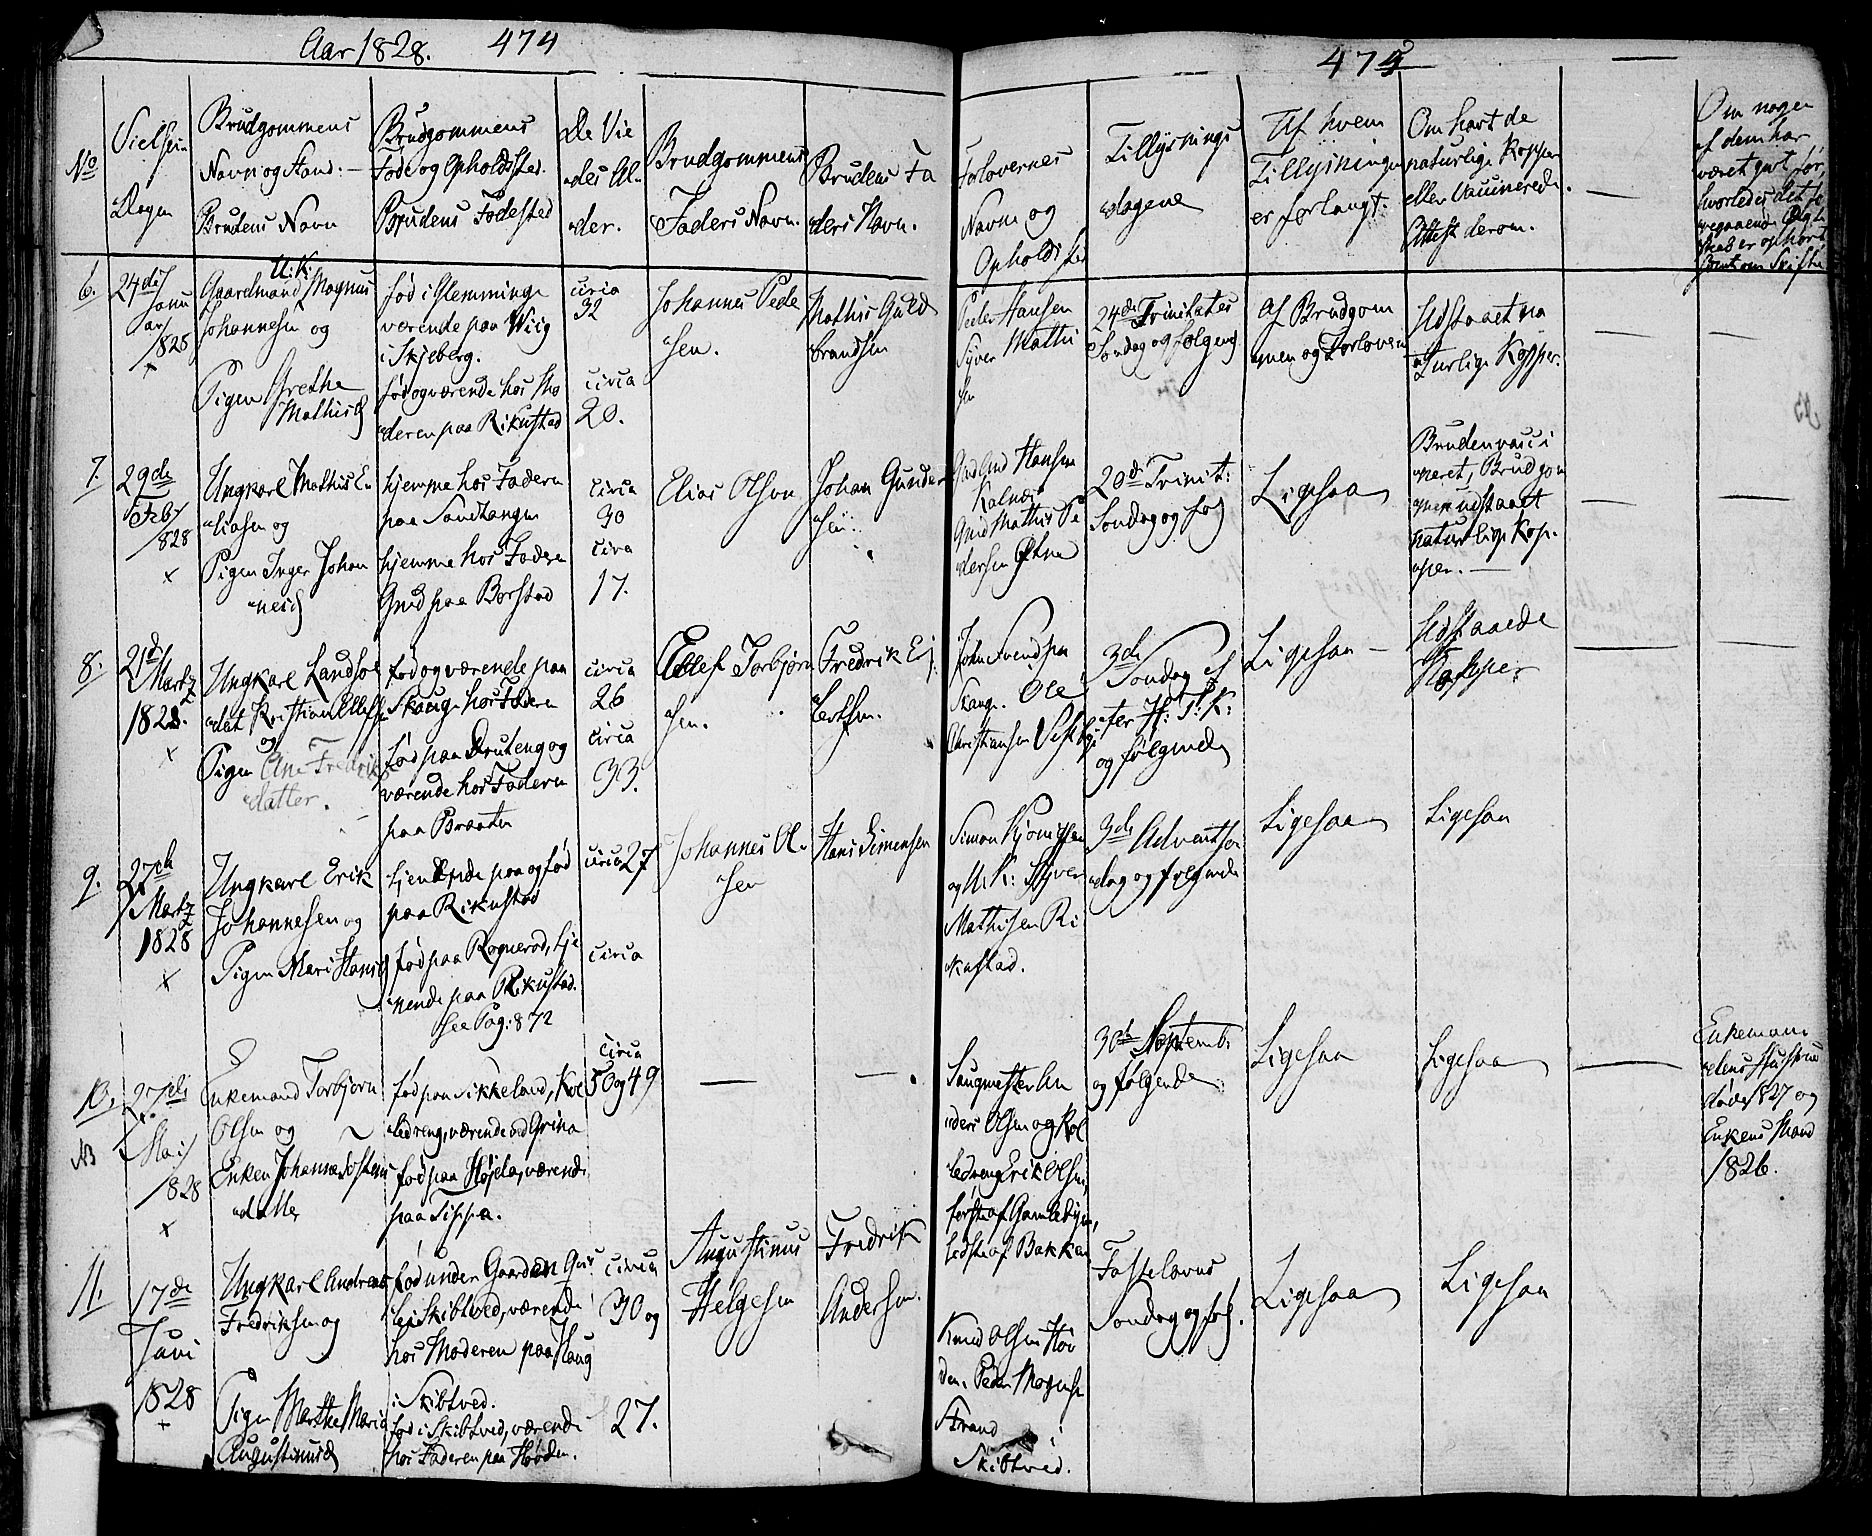 Aar 1828. 474
475
No
Vielsens
Dagen
Brudgommens
Navn og Stand: —
Brudens Navn
Brudgommens
Føde og Opholdsted.
Brudens Fødested
De Vie
des Al-
der.
Brudgommens
Faders Navn.
Brudens Fa
ders Navn.
Forlovernes
Navn og
Opholdsted
Tillysnings
dagene
Af hvem
Tillysningen
er forlangt:
Om havt de
naturlige Kopper
eller Vaccinerede.
Attest derom.
Om nogen
af dem har
været givt før,
hvorledes det fo
regaaende Ægte
skab er ophørt
Bevis om Skifte
6.
24de
Janu
ar
1828
+
U: K:
Gaardmand Magnus
Johannesen og
Pigen Grethe
Mathisd
fød i Glemminge
værende paa Wiig
i Skjeberg.
fød og værende hos Mo
deren paa Rikustad
circa
32
circa
20.
Johannes Pede
sen.
Mathis Guld
brandsen
Peder Hansen
Syver Mathi
sen
24de Trinitates
Søndag og følgende
Af Brudgom
men og Forloveren
Udstaaet na
turlige Kopper.
7.
29de
Feb
1828
x
Ungkarl Mathis E
liasen og
Pigen Inger Johan
nesd
hjemme hos Faderen
paa Sandtangen
hjemme hos Faderen
Gud paa Borstad
circa
30
circa
17.
Elias Olsen
Johan Gunder
sen:
Gud Hansen
Kalnæs
Gud Mathis Pe
dersen Østne
20de Trinit:
Søndag og følg
Ligesaa
Bruden vacci
neret, Brudgom
men udstaaet
naturlige Kop-
per. —
8.
21de
Martz
1828.
x
Ungkarl Landsol
dat Kristian Ellefsen
og
Pigen Ane Fredriks
datter.
fød og værende paa
Skauge hos Faderen
fød paa Bruteng og
værende hos Faderen
paa Braaten
circa
26
circa
33.
Ellef Torbjørn
sen.
Fredrik Ej
lertsen.
John Svendsen
Skauge. Ole
Christiansen Vestby
3de
Søndag ef
ter H: 3: K:
og følgende
Ligesaa —
Udstaaede
Kopper
9.
27de
Martz
1828
x
Ungkarl Erik
Johannesen og
Pigen Mari Hansd
tjenende paa og fød
paa Rikustad
fød paa Rognerød, tje
nende paa Rikustad.
see Pag: 872
circa 27
circa
Johannes Ol-
sen
Hans Simensen
Simon Kjønigsen
og U: K: Syver
Mathisen Ri
kustad.
3de Adventsøn
dag og følgende
Ligesaa
Ligesaa
10.
NB
27de
Mai
1828
x
Enkemand Torbjørn
Olsen og
Enken Johanne Tostens
datter
fød paa Sikkeland, Kol
ledreng, værende ved Grina
fød paa Højeta, værende
paa Sippa.
circa
50 og 49
—
—
Saugmester An
ders Olsen og Kol
ledreng Erik Olsen,
første af Gamlebyen,
sidste af Bakken
30te Septemb:
og følgende
Ligesaa
Ligesaa
Enkemann
dens Hustrue
døde 1827 og
Enkens Mand
1826.
11.
17de
Juni
1828
+
Ungkarl Andreas
Fredriksen og
Pigen Marthe Maria
Augustinusd
fød under Gaarden Gus
lie i Skibtved, værende
hos Moderen paa Haug
i Skibtved.
fød i Skibtved, værende
hos Faderen paa Høøden.
circa
30 og
27.
Augustinus
Helgesen
Fredrik
Andersen.
Knud Olsen Høv
den, Peder Mogensen
Strand i
Skibtved.
Fastelavns
Søndag og følg.
Ligesaa
Ligesaa